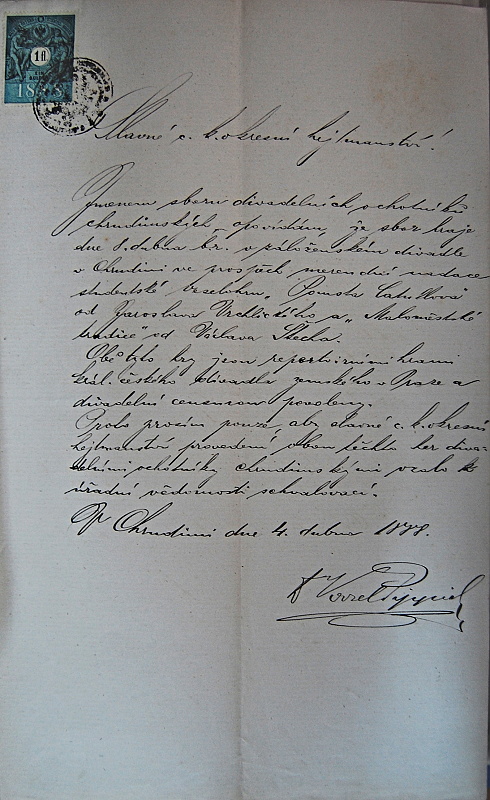 1 fl
1888
Slavné c. k. okresní hejtmanství!
Jmenem sboru divadelních ochotníků
chrudimských opovídám, že sbor hraje
dne 8. dubna br. v záloženském divadle
v Chrudimi ve prospěch mensední nadace
studentské veselohru „Pomsta Catullova"
od Jaroslava Vrchlického a „Maloměstské
tradice" od Václava Štecha.
Obě tyto hry jsou repertoirními hrami
král. českého divadla zemského v Praze a
divadelní censurou povoleny.
Proto prosím pouze, aby slavné c. k. okresní
hejtmanství provedení obou těchto her diva-
delními ochotníky chrudimskými vzalo k
úřední vědomosti schvalovací.
V Chrudimi dne 4. dubna 1888.